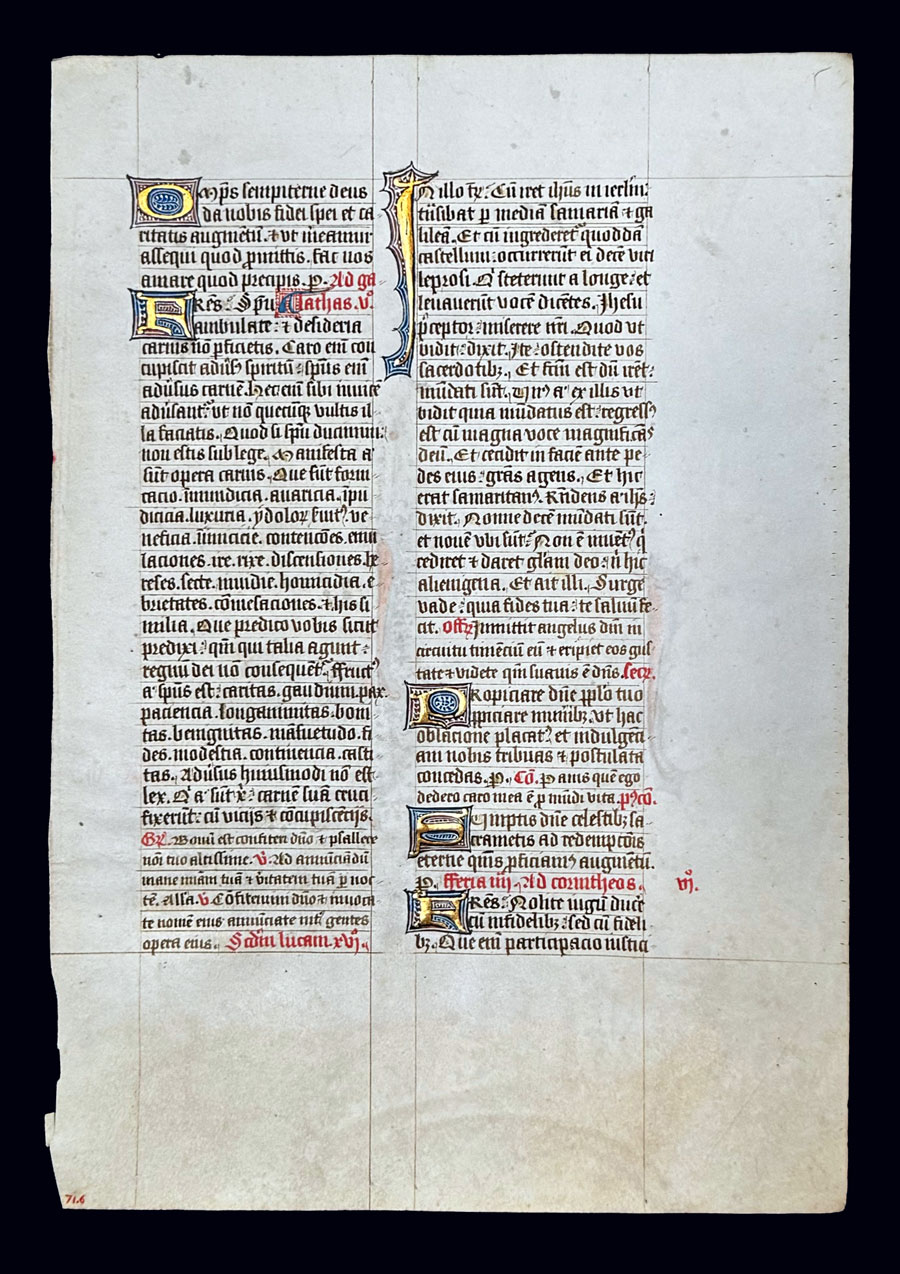 Omps sempiterne deus
da nobis fidei spei et ca
ritatis augmentū. ⁊ ut mereamur
assequi quod promittis. fac nos
amare quod precipis. p. Ad ga
FRēs: Spū lathas. vº.
ambulate: ⁊ desideria
carnis nō perficietis. Caro enī con
cupiscit aduersus spiritū: spūs enī
aduersus carnē. Hec enī sibi inuicē
aduersant᷑: ut nō quecūq; vultis il
la faciatis. Quod si spū ducimini:
non estis sub lege. Manifesta aͭ
sūt opera carnis. Que sūt forni
cacio. inmūdicia. auaricia. īpu
dicicia. luxuria. ydoloꝝ ẜuitꝰ. ve
neficia. inimicicie. contenciōes. emu
laciones. ire. rixe. discensiones. he
reses. secte. inuidie. homicidia. e
brietates. cōmesaciones. ⁊ his si
milia. Que predico vobis sicut
predixi: qm̄ qui talia agunt:
regnū dei nō consequent᷑. ffructꝰ
aͭ spūs est: caritas. gaudium. pax.
paciencia. longanimitas. boni
tas. benignitas. mansuetudo. fi
des. modestia. continencia. casti
tas. Aduersus huiusmodi nō est
lex. Qͥ aͭ sūt xͥ: carnē suā cruci
fixerūt: cū vicijs ⁊ cōcupiscēcijs.
Gr̄. Bonū est confiteri dn̄o ⁊ psallere
noī tuo altissime. v. Ad annūciādū
mane mīam tuā ⁊ v̄itatem tuā p noc
tē. Alla. v. Cōfitemini dn̄o ⁊ inuoca
te nomen eius annūciate int̄ gentes
opera eius. Scd̄m lucam. xvij.
In illo tꝑe: Cū iret ihūs in ierl̄m:
trāsibat p mediā samariā ⁊ ga
lileā. Et cū ingrederet᷑ quoddā
castellum: occurrerūt ei decē viri
leprosi. Qͥ steterunt a longe: et
leuauerūt vocē dicētes. Jhesu
pͨceptor: miserere nr̄i. Quos vt
vidit: dixit. Ite: ostendite vos
sacerdotibꝫ. Et fc̄m est dū irēt:
mūdati sūt. Vnꝰ aͭ ex illis vt
vidit quia mūdatus est: regressꝰ
est cū magna voce magnificās
deū. Et cecidit in faciē ante pe
des eius: gr̄as agens. Et hic
erat samaritanꝰ. Rn̄dens aͭ ihs:
dixit. Nonne decē mūdati sūt.
et nouē vbi sūt: Non ē inuētꝰ qͥ
rediret ⁊ daret gl̄am deo: nͥ hic
alienigena. Et ait illi. Surge
vade: quia fides tua: te saluū fe
cit. Offꝝ Inmittit angelus dn̄i in
circuitu timenciū eū ⁊ eripiet eos gus
tate ⁊ videte qm̄ suauis ē dn̄s. secꝝ.
Propiciare dn̄e pplo tuo
ppiciare munībꝫ. vt hac
oblacione placatꝰ: et indulgenci
am nobis tribuas ⁊ postulata
concedas. p. Cō. panis quē ego
dedero caro mea ē p mūdi vita. pꝰcō.
Sumptis dn̄e celestibꝫ sa
crametis ad redempcōis
eterne qm̄s proficiamꝰ augmētū.
p. fferia iiij. Ad corintheos. vj.
FRēs: Nolite iugū duce
cū infidelibꝫ: sed cū fideli
bꝫ. Que enī participacio iustici
71.6